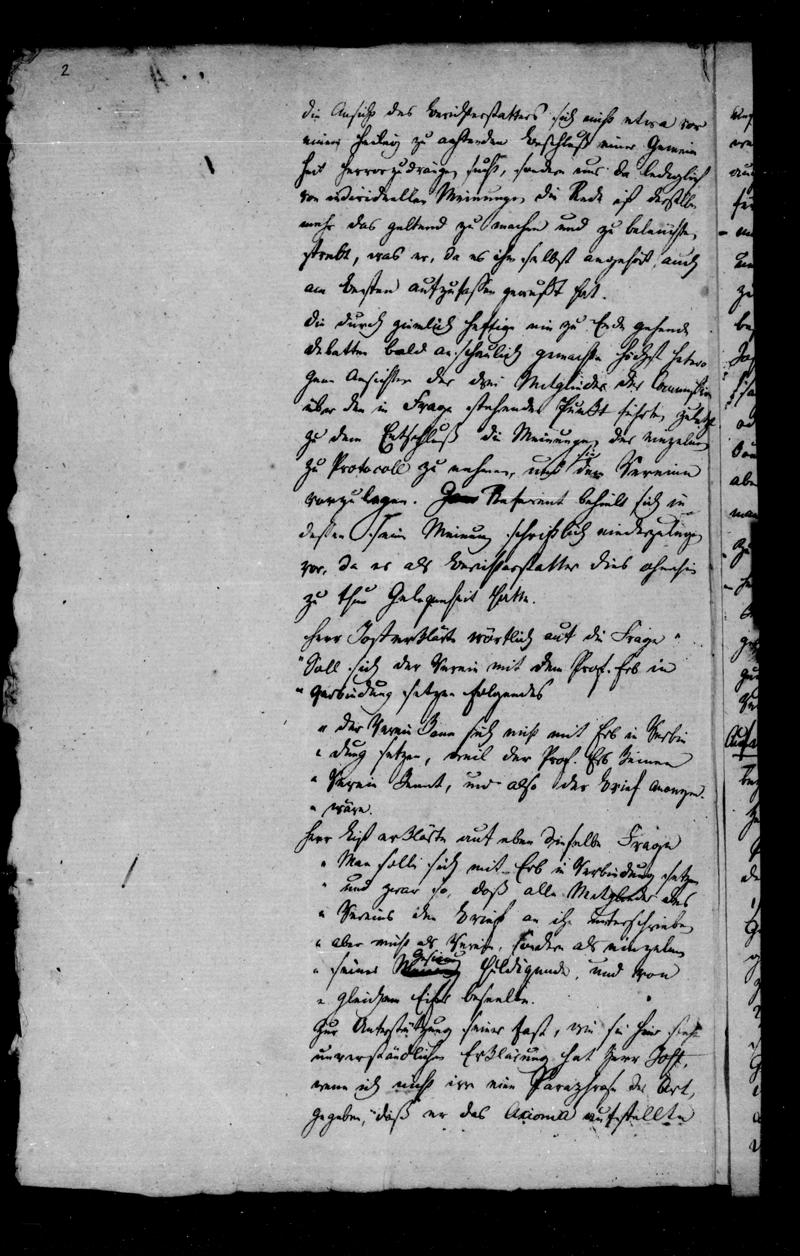 2
die Ansicht des Berichterstatters sich nicht etwa vor
einem heilig zu achtenden Beschluß einer Gemein
heit hervorzudrängen sucht, sondern nur da lediglich
von individuellen Meinungen die Rede ist derselbe
mehr das geltend zu machen und zu beleuchten
strebt, was er, da es ihm selbst angehört, auch
am besten aufzufassen gewußt hat.
Die durch ziemlich heftige nie zu Ende gehende
Debatten bald anschaulich gemachte höchst hetero
gene Ansichten der drei Mitglieder der Commission
über den in Frage stehenden Punkt führte zuletzt
zu dem Entschluß die Meinungen der einzelnen
zu Protocoll zu nehmen, und sie dem Vereine
vorzulegen. Referent behielt sich in
dessen seine Meinung schriftlich niederzulegen
vor, da er als Berichterstatter dies ohnehin
zu thun Gelegenheit hatte.
Herr Jost erklärte wörtlich auf die Frage "
"Soll sich der Verein mit dem Prof. Erb in
" Verbindung setzen folgendes
" der Verein kann sich nicht mit Erb in Verbin
" dung setzen, weil der Prof. Erb keinen
" Verein kennt, und also der Brief anonym
" wäre.
Herr List erklärte auf eben dieselbe Frage
" Man solle sich mit Erb in Verbindung setzen
" und zwar so, daß alle Mitglieder des
" Vereins den Brief an ihn unterschrieben
" aber nicht als Verein, sondern als einzelne
" seiner Gesinnung Huldigende, und von
" gleichem Eifer beseelte.
Zur Unterstützung seiner fast, wie sie hier steht
unverständlichen Erklärung hat Herr Jost,
wenn ich nicht irre eine Paraphrase der Art,
gegeben, "daß er das Axioma aufstellte